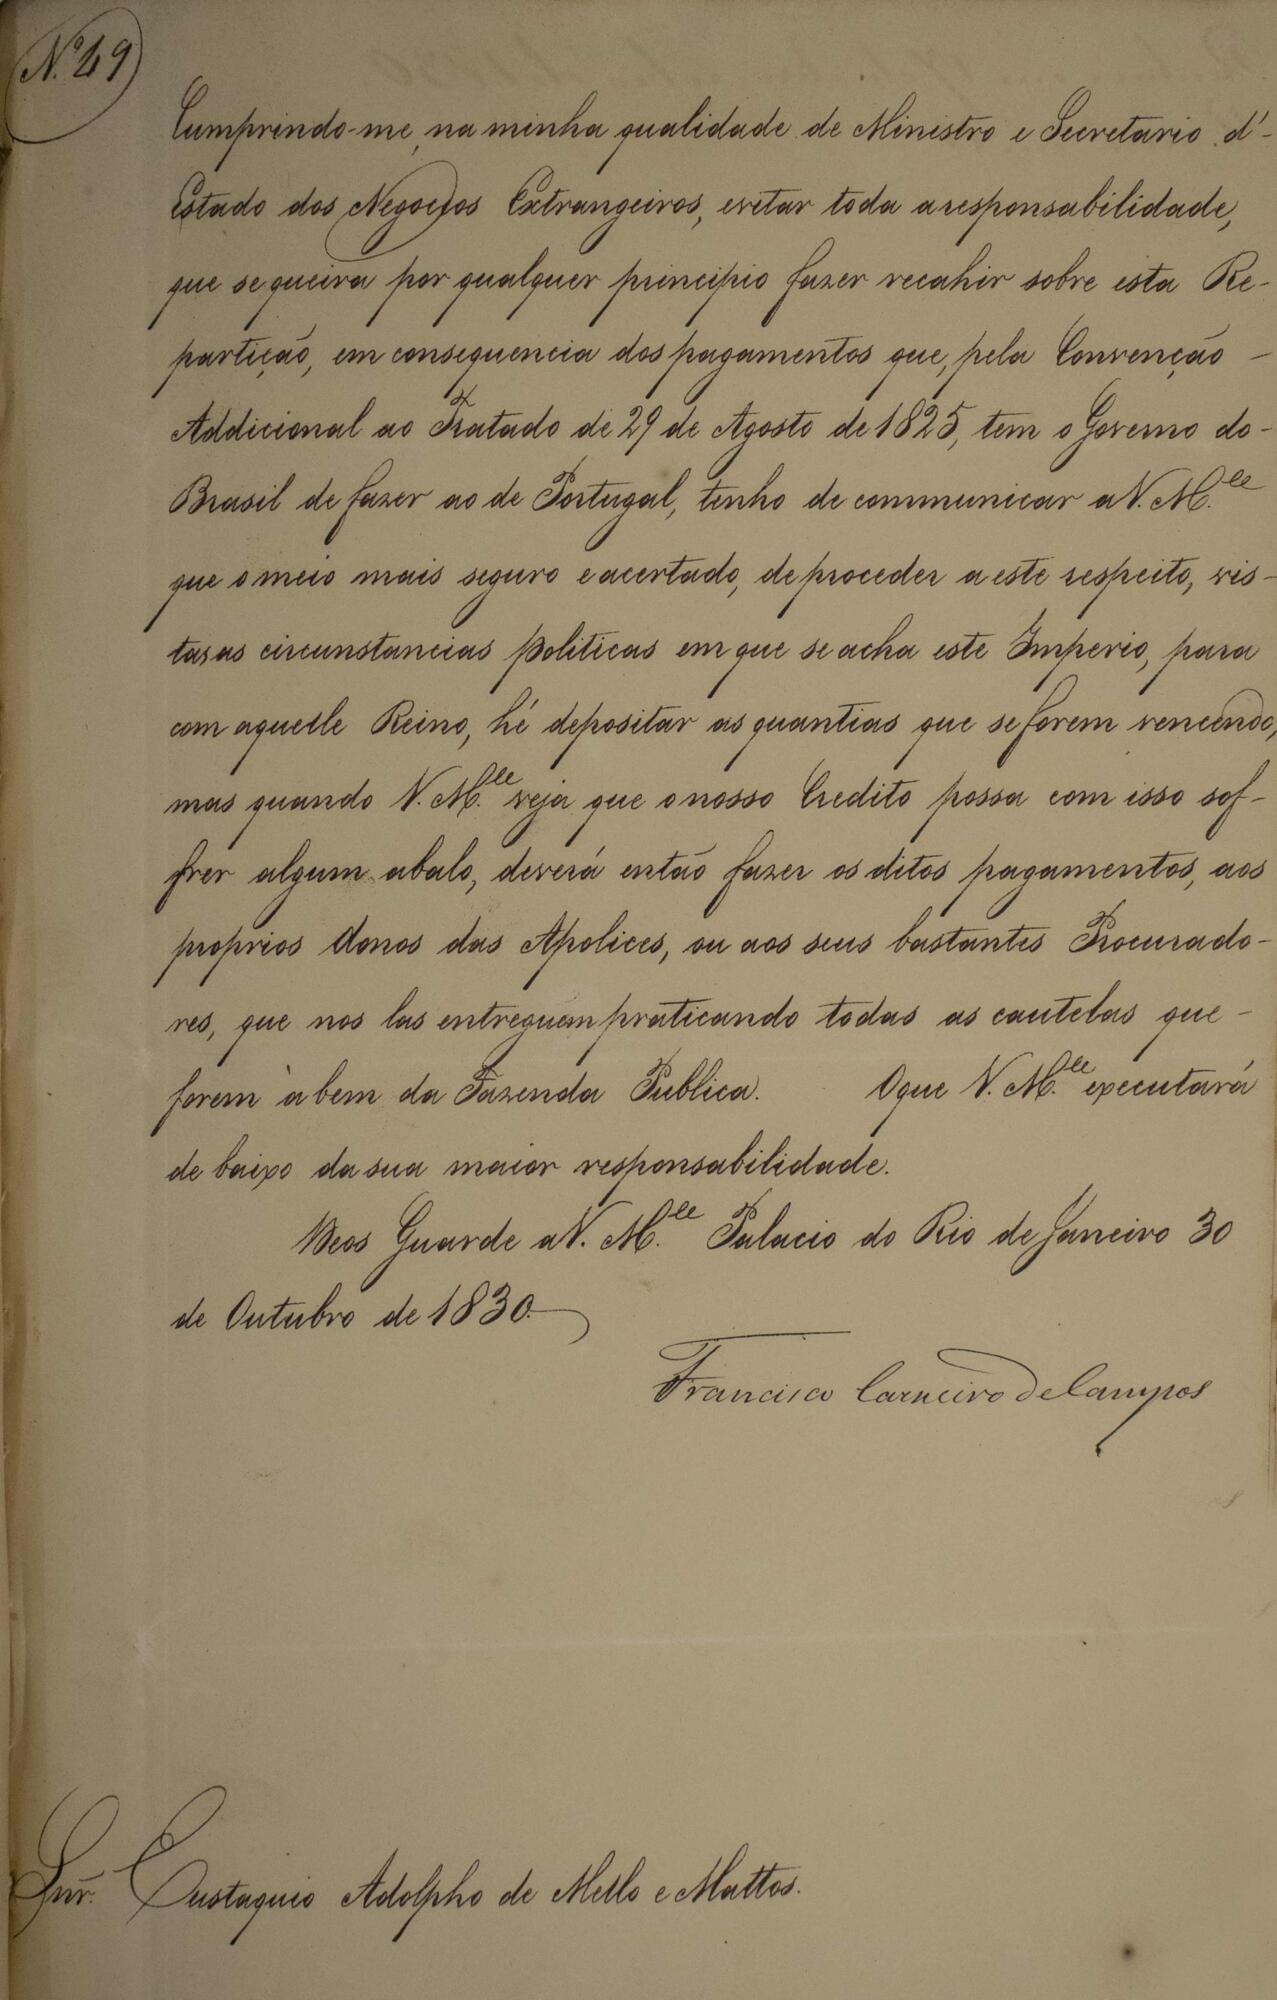 Nº 49
Cumprindo-me, na minha qualidade de Ministro e Secretario d'-
Estado dos Negocios Extrangeiros, evitar toda a responsabilidade,
que se queira por qualquer principio fazer recahir sobre esta Re-
partição, em consequencia dos pagamentos que, pela Convenção -
Addicional ao Tratado de 29 de Agosto de 1825, tem o Governo do -
Brasil de fazer ao de Portugal, tenho de communicar a V. M.ce
que o meio mais seguro e acertado, de proceder a este respeito, vis-
tas as circunstancias politicas em que se acha este Imperio, para
com aquelle Reino, hé depositar as quantias que se forem vencendo,
mas quando V. M.ce veja que o nosso Credito possa com isso sof-
frer algum abalo, deverá então fazer os ditos pagamentos, aos
proprios donos das Apolices, ou aos seus bastantes Procurado-
res, que nos las entreguem praticando todas as cautelas que -
forem à bem da Fazenda Publica. O que V. M.ce executará
de baixo da sua maior responsabilidade.
Deos Guarde a V. M.ce Palacio do Rio de Janeiro 30
de Outubro de 1830.
Francisco Carneiro de Campos
Snr. Eustaquio Adolpho de Mello e Mattos.